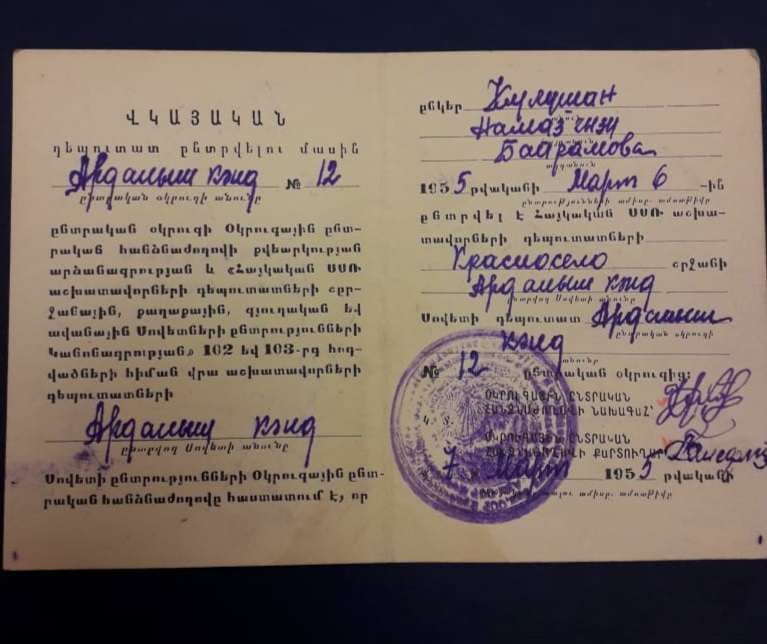 ՎԿԱՅԱԿԱՆ
դեպուտատ ընտրվելու մասին
Ардашыш кэнд № 12
ընտրական օկրուգի անունը
ընտրական օկրուգի Օկրուգային ընտ-
րական հանձնաժողովի քվեարկության
արձանագրության և «Հայկական ՍՍՌ
աշխատավորների դեպուտատների շըր-
ջանային, քաղաքային, գյուղական եվ
ավանային Սովետների ընտրությունների
Կանոնադրության» 102 եվ 103-րդ հոդ-
վածների հիման վրա աշխատավորների
դեպուտատների
Ардашыш кэнд
ընտրվող Սովետի անունը
Սովետի ընտրությունների Օկրուգային ընտ-
րական հանձնաժողովը հաստատում է, որ
ընկեր Кулушан
Намаз
Байрамова
ազգանուն
1955 թվականի Март 6 -ին
ընտրությունների ամիսը, ամսաթիվը
ընտրվել է Հայկական ՍՍՌ աշխա-
տավորների դեպուտատների
Красносело շրջանի
Ардашыш кэнд
ընտրվող Սովետի անունը
Սովետի դեպուտատ Ардашыш
ընտրական օկրուգի
кэнд
անունը
№ 12 ընտրական օկրուգից:
ՕԿՐՈՒԳԱՅԻՆ ԸՆՏՐԱԿԱՆ
ՀԱՆՁՆԱԺՈՂՈՎԻ ՆԱԽԱԳԱՀ՝
Կ. Տ.
ՕԿՐՈՒԳԱՅԻՆ ԸՆՏՐԱԿԱՆ
ՀԱՆՁՆԱԺՈՂՈՎԻ ՔԱՐՏՈՒՂԱՐ
7 Март 1955 թվականի
ամիսը, ամսաթիվը